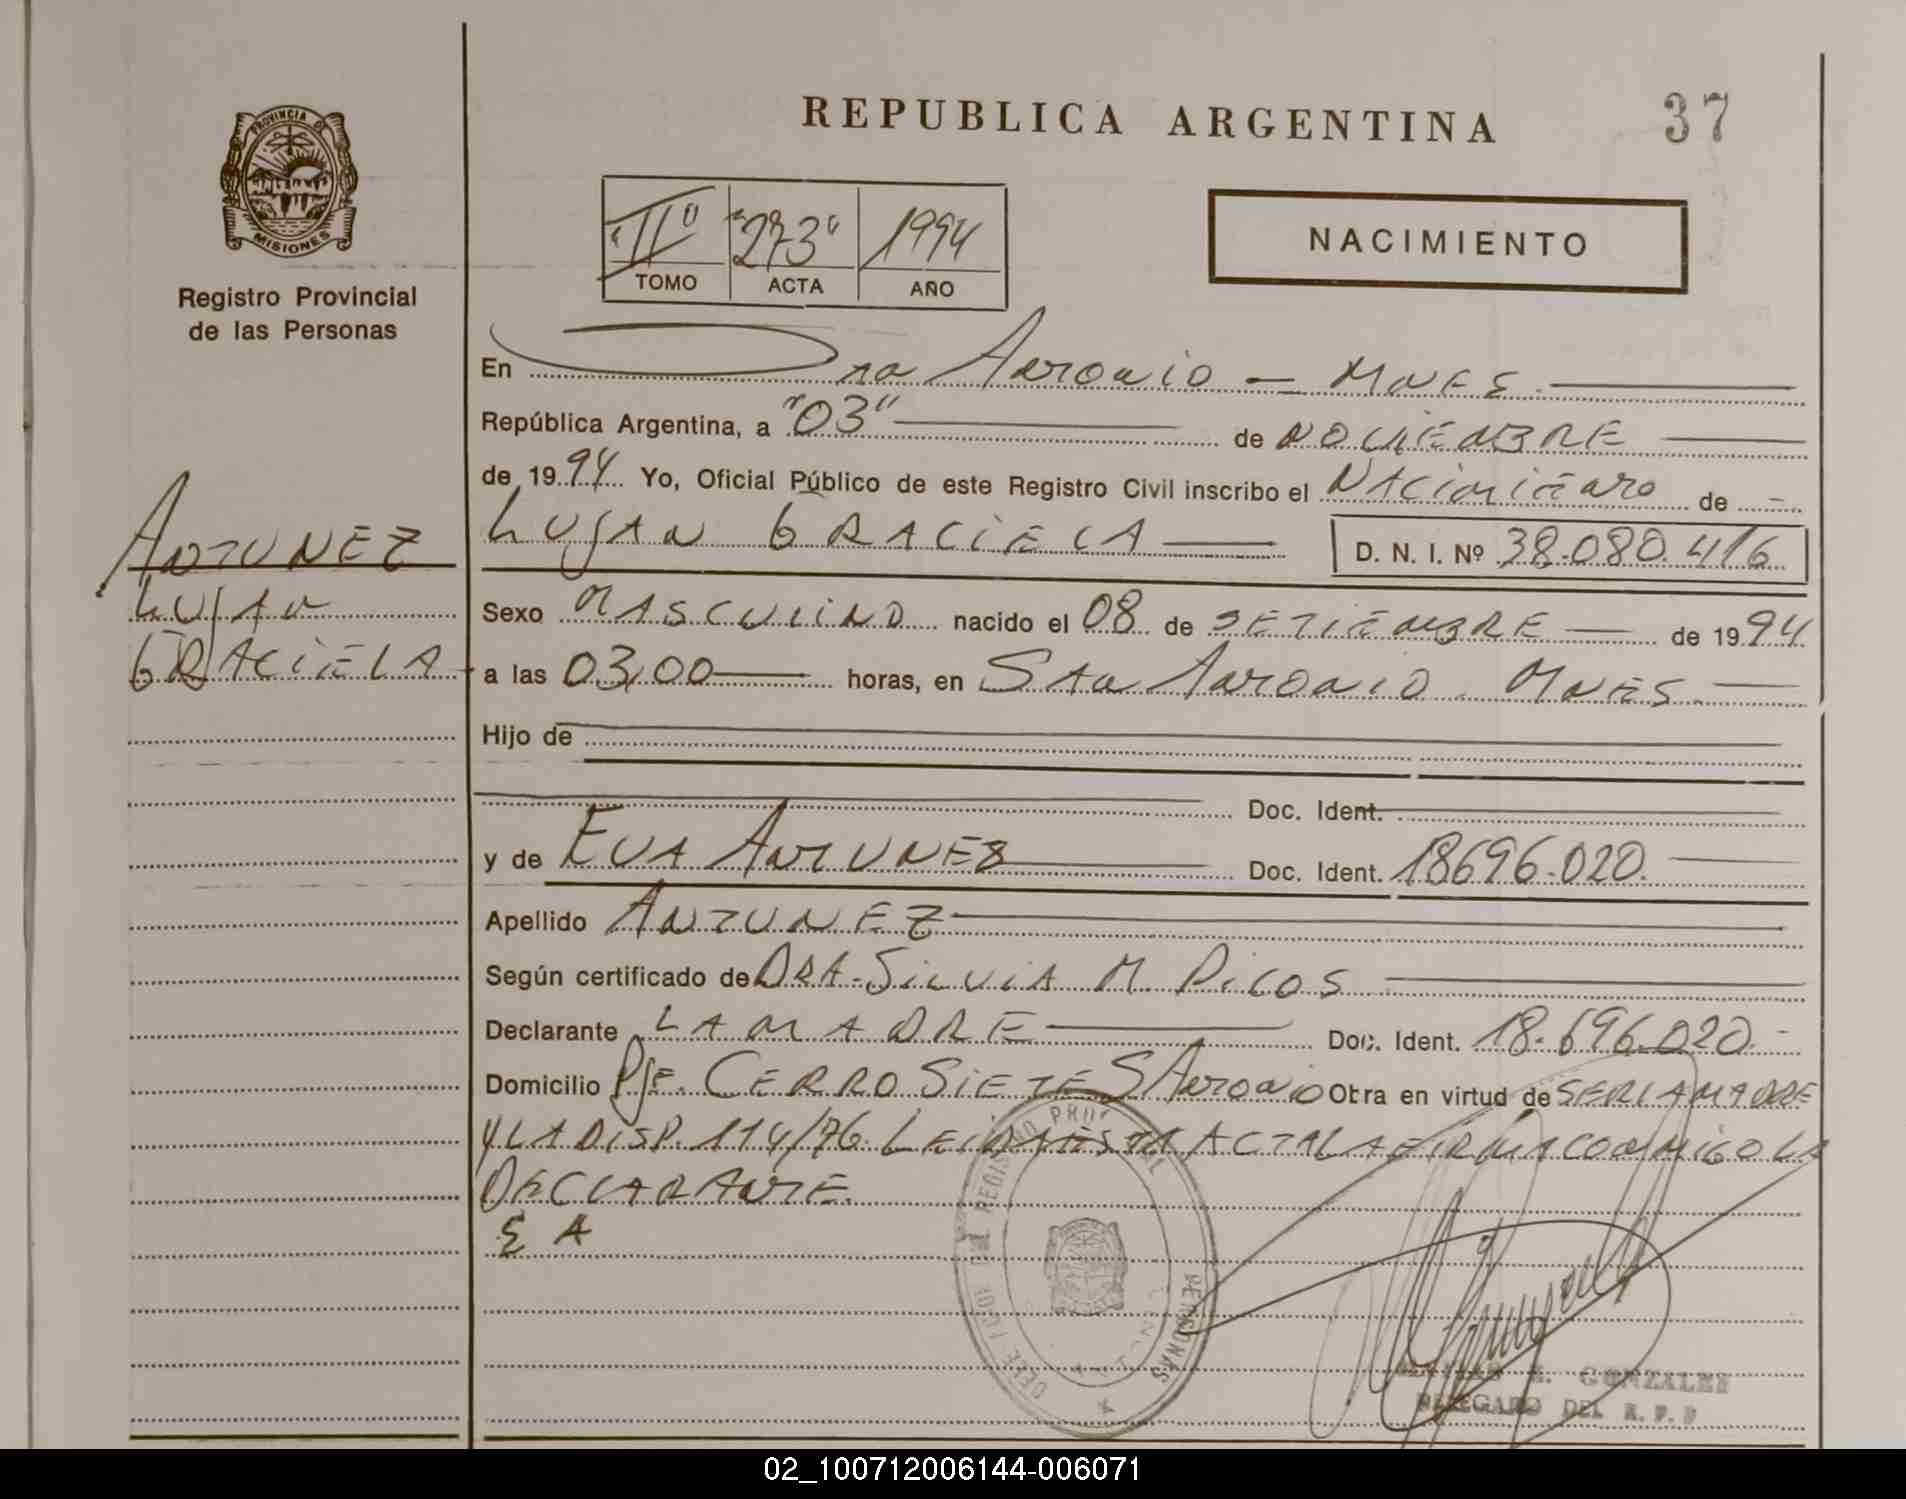 REPUBLICA ARGENTINA
37
PROVINCIA DE
MISIONES
Registro Provincial
de las Personas
"II" "273" 1994
TOMO ACTA AÑO
NACIMIENTO
En Antonio - MNES
República Argentina, a "03" de NOVIEMBRE
de 1994 Yo, Oficial Público de este Registro Civil inscribo el NACimiento de
LUJAN GRACIELA D. N. I. Nº 38.080.416
ANTUNEZ
LUJAN
GRACIELA
Sexo MASCULINO nacido el 08 de SETIEMBRE de 1994
a las 03,00 horas, en Stan Antonio. MNES
Hijo de
Doc. Ident.
y de EVA ANTUNEZ Doc. Ident. 18696.020.
Apellido ANTUNEZ
Según certificado de DRA. SILVIA M. PICOS
Declarante LA MADRE Doc. Ident. 18.696.020.-
Domicilio Pje. CERRO SIETE S Antonio Otra en virtud de SER LA MADRE
Y LA DISP. 114/76. LEIDA ESTA ACTA LA FIRMA CONMIGO LA
DECLARANTE.
E A
GONZALES
DELEGADO DEL R. P. P
02_100712006144-006071